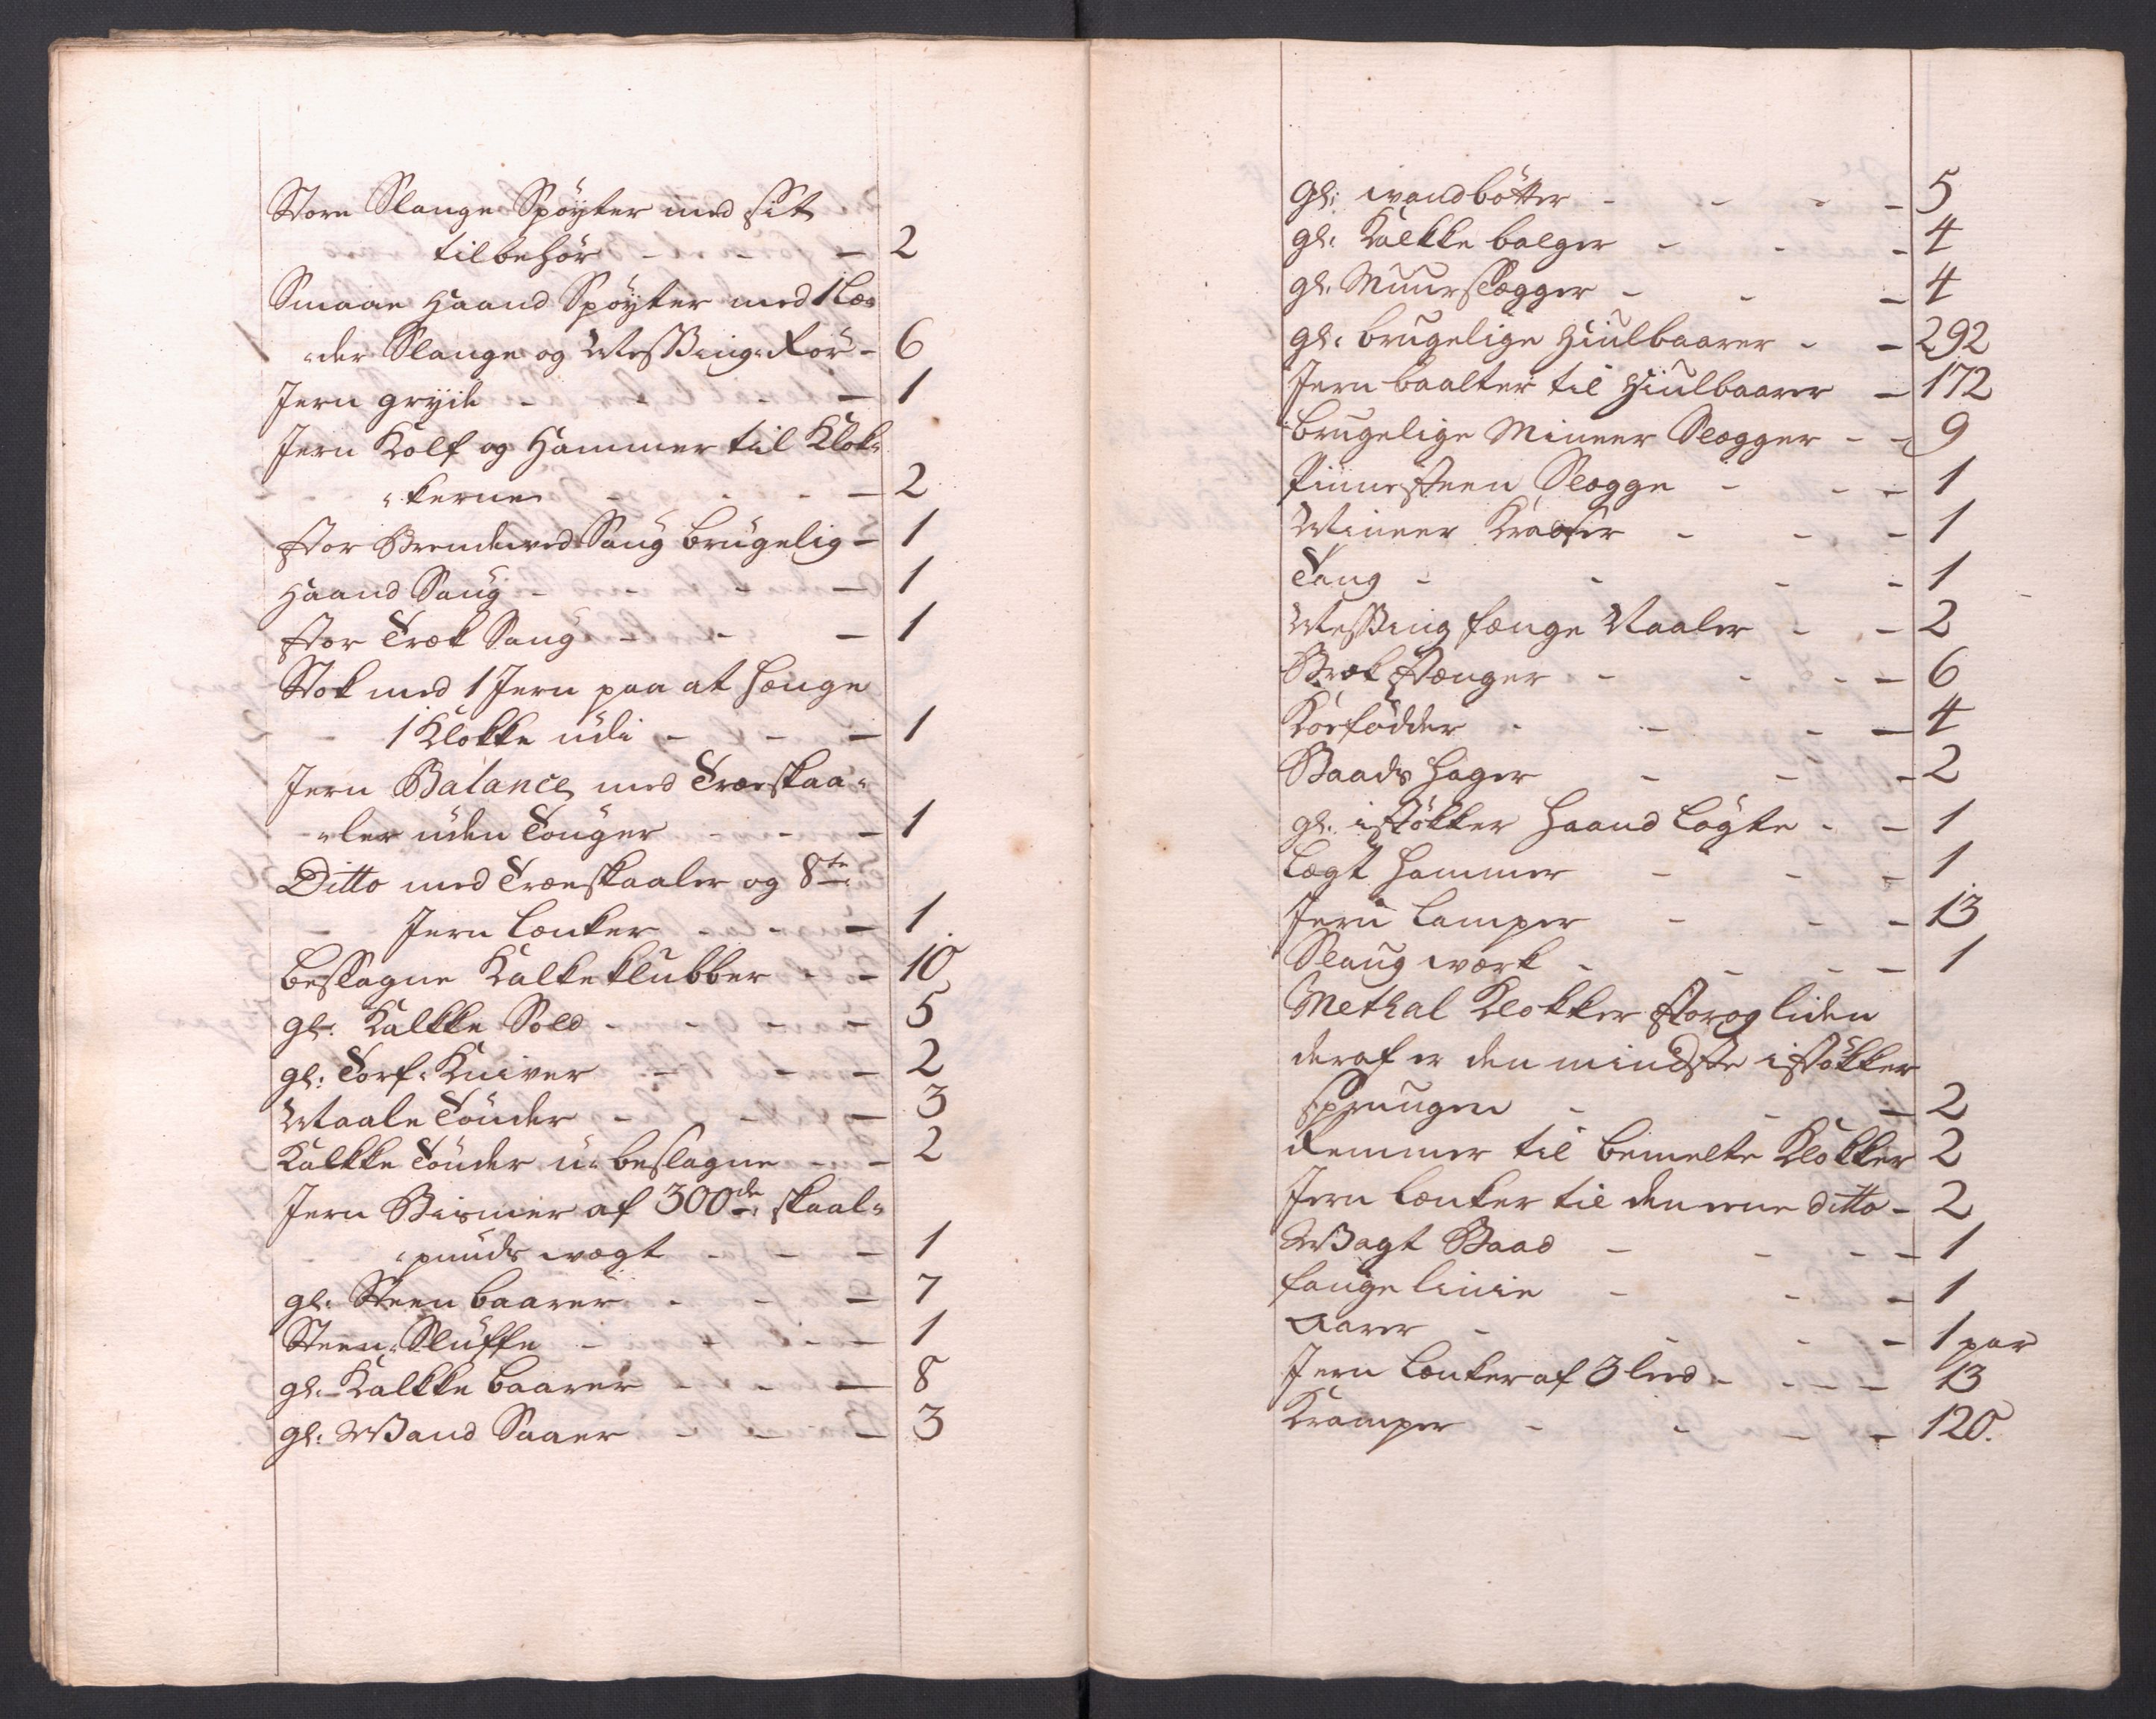 Store Slange Spøyter med sit
tilbehör - - - 2
Smaae Haand Spøyter med 1 Læ-
-der Slange og Messing-Rör - 6
Jern gryde - - - 1
Jern Kolf og Hammer til Klok-
-kerne - - - 2
stor Brendeved Saug brugelig - 1
Haand Saug - - - 1
stor Træk Saug - - - 1
Stok med 1 Jern paa at hænge
1 Klokke udi - - - 1
Jern Balance med Træskaa-
-ler uden Touger - - - 1
Ditto med Træeskaaler og 8te
Jern Lænker - - - 1
beslagne Kalkeklubber - - 10
gl: Kalkke Sold - - - 5
gl: Torf-Kniver - - - 2
Maale Tönder - - - 3
Kalkke Tönder u-beslagne - - 2
Jern Bismer af 300de skaal-
-punds vægt - - - 1
gl: Steen baarer - - - 7
Steen-Sluffe - - - 1
gl: Kalkke baarer - - - 8
gl: Wand Saaer - - - 3
gl: vandbötter - - - 5
gl: Kalkke balger - - - 4
gl: Muurslægger - - - 4
gl: brugelige Hiulbaarer - - 292
Jern baalter til Hiulbaarer - 172
brugelige Mineer Slægger - - 9
Pinnesteen Slægge - - - 1
Mineer Kradser - - - 1
Tang - - - 1
Messing fænge Naaler - - 2
Bræk stænger - - - 6
Koefödder - - - 4
Baads Hager - - - 2
gl: istökker Haand Lögte - - 1
Lægt Hammer - - - 1
Jern Lamper - - - 13
Slaug værk - - - 1
Methal Klokker stor og liden
deraf er den mindste istökker
sprungen - - - 2
Remmer til bemelte Klokker 2
Jern Lænker til den eene ditto - 2
Wagt Baad - - - 1
fange Linie - - - 1
Aarer - - - 1 par
Jern Lænker af 3 leed - - - 13
Kramper - - - 120.